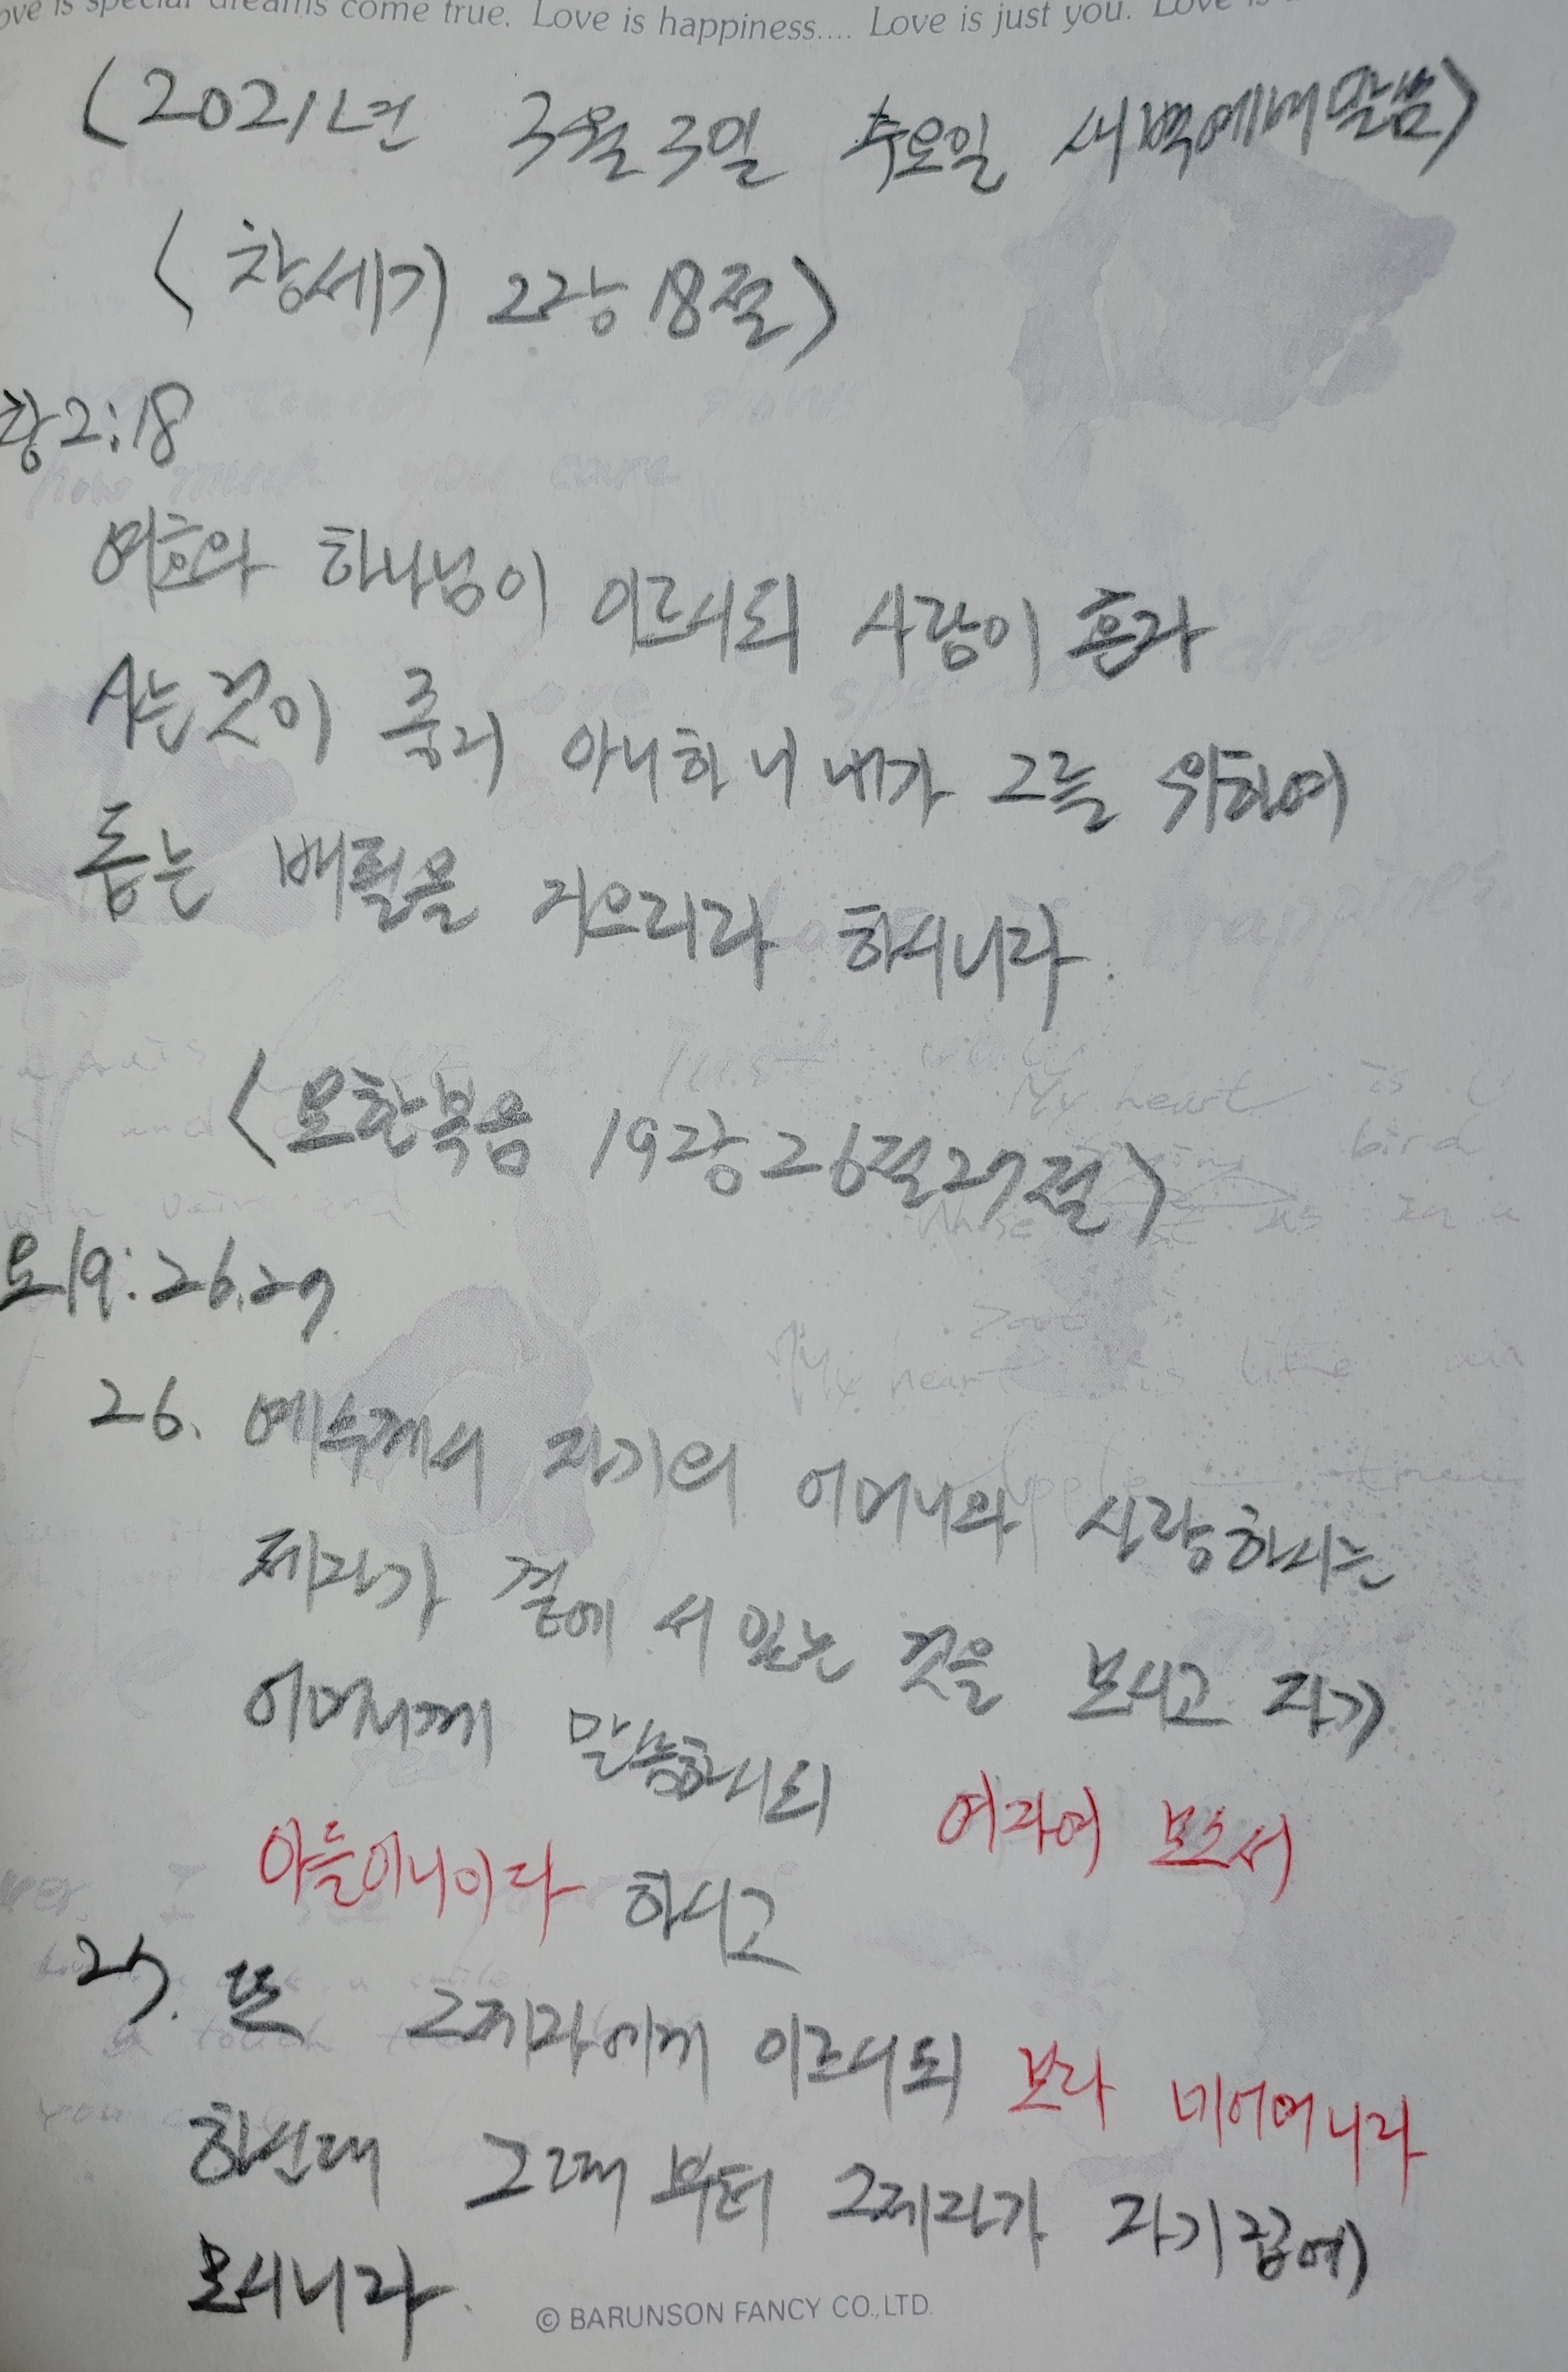 ove is special dreams come true. Love is happiness.... Love is just you. Love is
〈2021년 3월 3일 수요일 새벽예배말씀〉
〈창세기 2장 18절〉
창2:18
여호와 하나님이 이르시되 사람이 혼자
사는것이 좋지 아니하니 내가 그를 위하여
돕는 배필을 지으리라 하시니라.
〈요한복음 19장 26절27절〉
요19:26.27
26. 예수께서 자기의 어머니와 사랑하시는
제자가 곁에 서 있는 것을 보시고 자기
어머니께 말씀하시되 여자여 보소서
아들이니이다 하시고
27. 또 그제자에게 이르시되 보라 네어머니라
하신대 그때부터 그제자가 자기집에
모시니라.
© BARUNSON FANCY CO.,LTD.